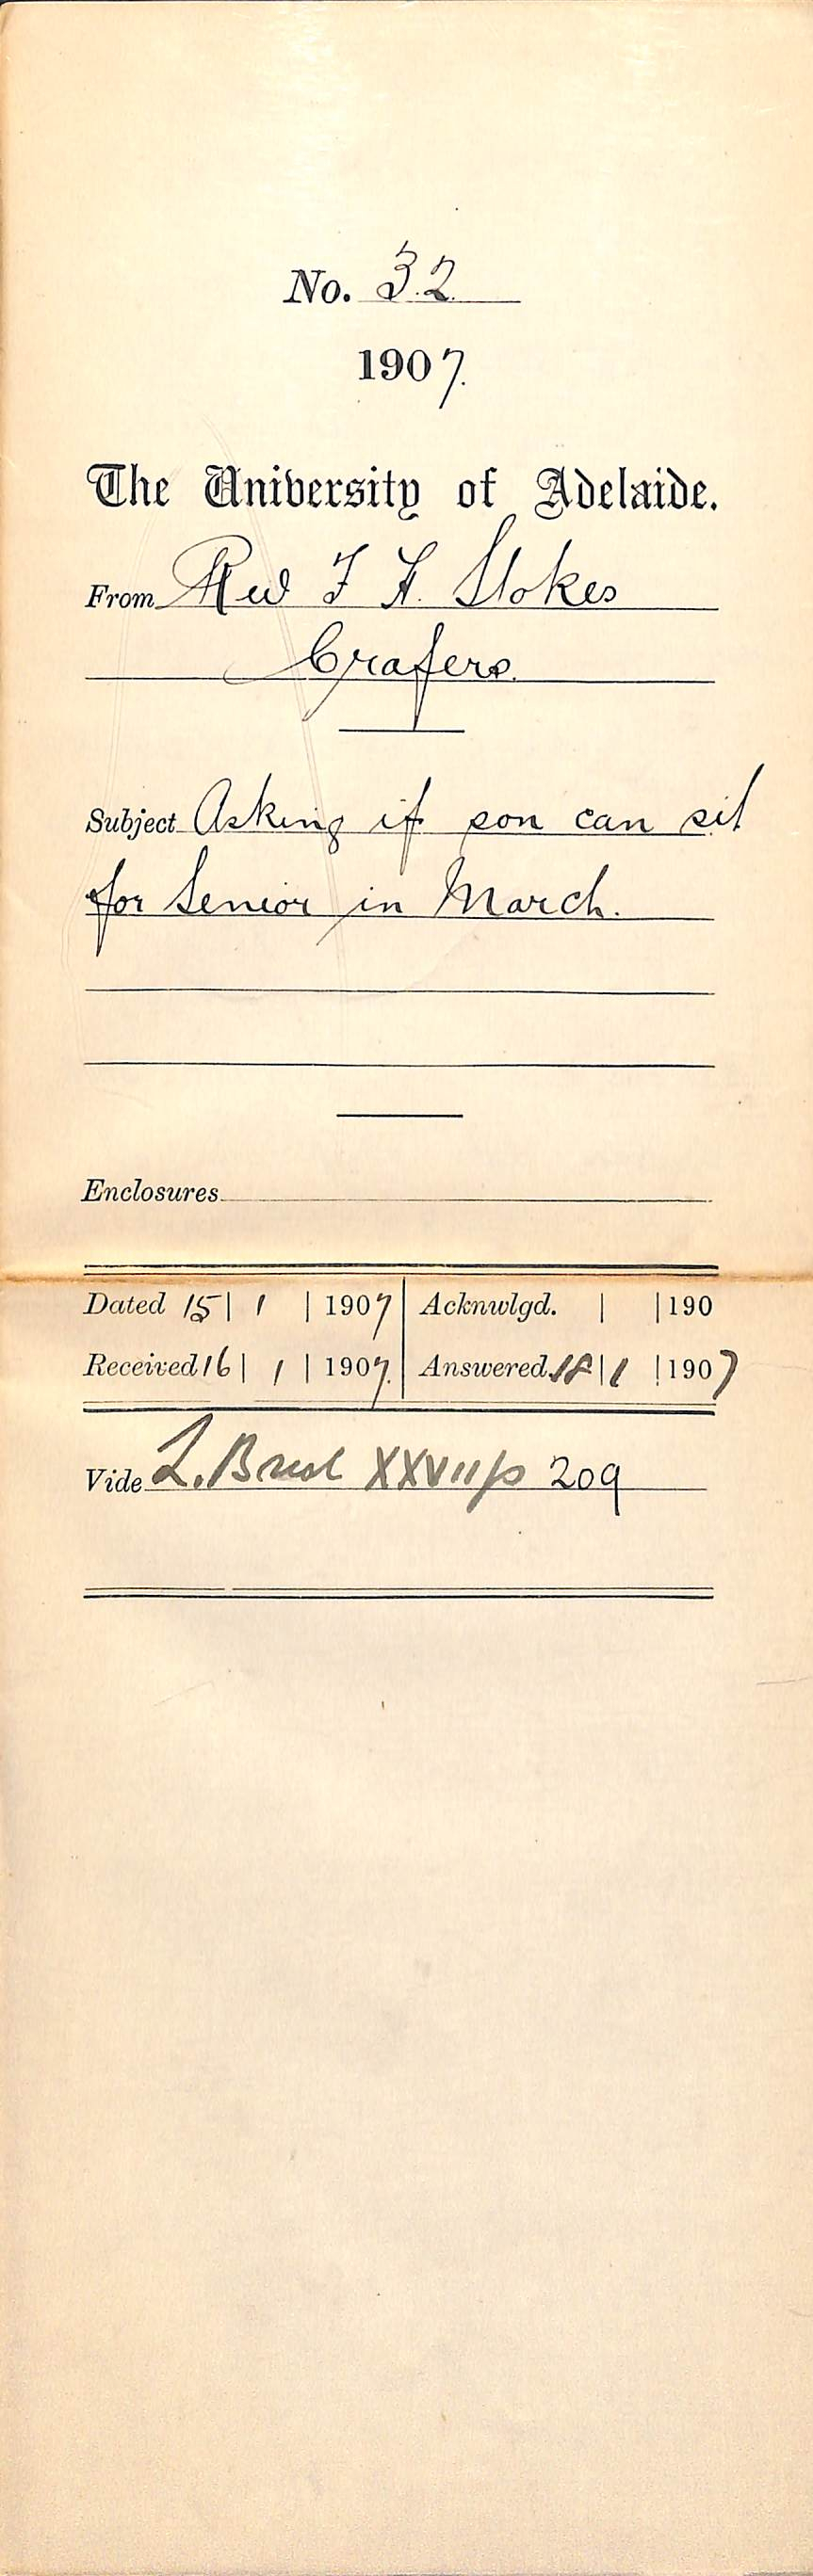 No. 32
1907.
The University of Adelaide.
From Rev F H. Stokes
Crafers.
Subject Asking if son can sit
for Senior in March.
Enclosures
Dated 15 | 1 | 1907 Acknwlgd. | | 190
Received 16 | 1 | 1907. Answered 18 | 1 | 1907
Vide L. Book XXVII p 209